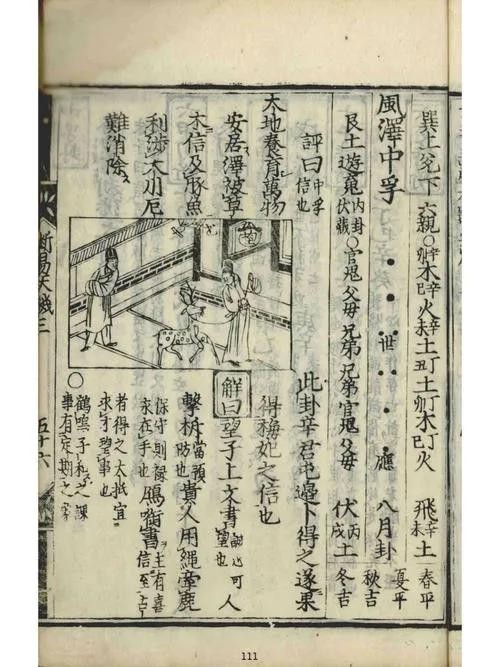 巽上兌下 六親○ 辛卯木 辛巳火 辛未土 丁丑土 丁卯木 丁巳火 飛 辛未土 春平 夏平
風澤中孚 世 應 八月卦 秋吉
艮土遊䰟 內卦伏藏 官鬼父母兄弟兄弟官鬼父母 伏 丙戌土 冬吉
評曰 中孚信也
天地養育萬物
安居澤被草
木信及豚魚
利涉大川厄
難消除
此卦辛君屯邊卜得之遂果
得梅妃之信也
解曰 望子上文書 望也 可人
擊柝 當預防也 貴人用繩牽鹿
保守則祿求在手也 鴈啣書 主有喜信至
者得之大抵宜求才望事也
○鶴鳴子和之課事有定期之
斷易天機三
五十六
111